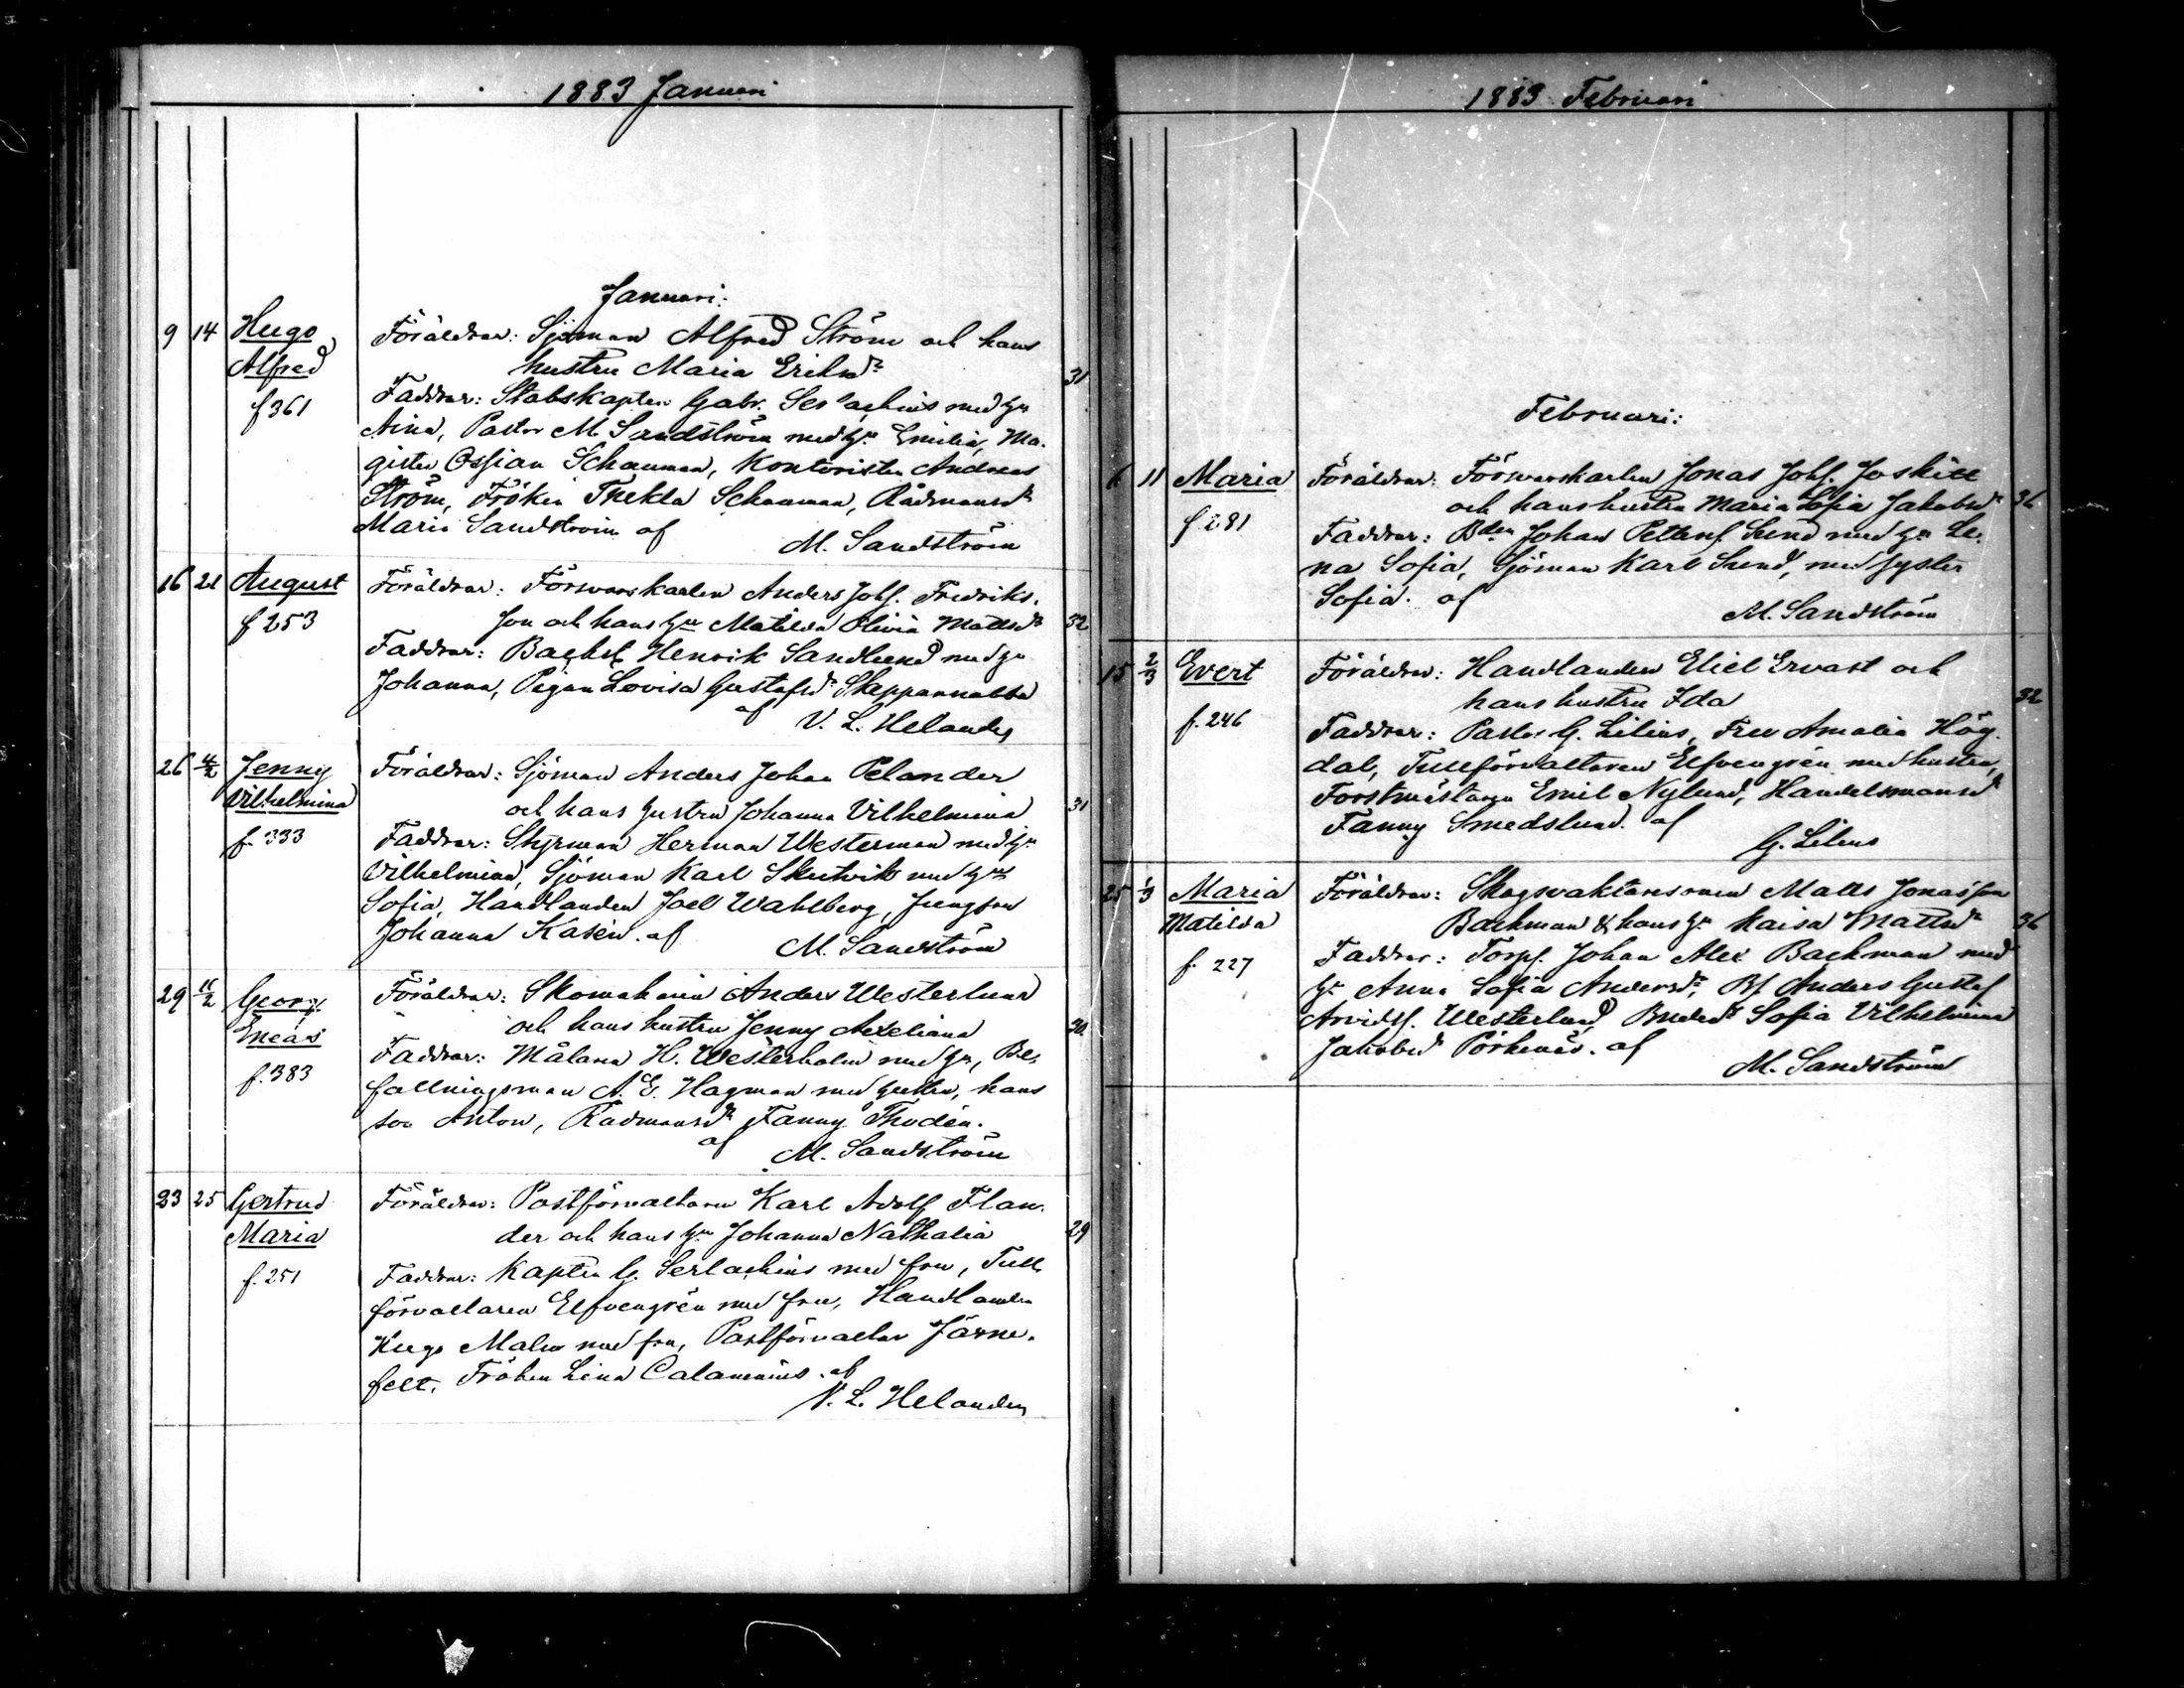 1883 Januari
Januari:
9 14 Hugo Alfred f 361
Föräldrar: Sjöman Alfred Ström och hans
hustru Maria Eriksdr 31
Faddrar: Stabskapten Gabr. Serlachius med hu
Aina, Pastor M. Sandström med hu Emilia, Ma-
gister Ossian Schauman, Kontoristen Andreas
Ström, Fröken Thekla Schauman, Rådmansdr
Maria Sandström af
M. Sandström
16 21 August f 253
Föräldrar: Försvarskarlen Anders Johs. Fredriks-
son och hans hu Matilda Olivia Mattsdr 32
Faddrar: Backst. Henrik Sandlund med hu
Johanna, Pigan Lovisa Gustafsdr Skeppar
af V. L. Helander
26 4/2 Jenny Vilhelmina f. 333
Föräldrar: Sjöman Anders Johan Pelander
och hans hustru Johanna Vilhelmina 31
Faddrar: Styrman Herman Westerman med hu
Vilhelmina, Sjöman Karl Skutvik med hu
Sofia, Handlanden Joel Wahlberg, Jungfru
Johanna Kasén. af
M. Sandström
29 11/2 Georg Eneas f. 383
Föräldrar: Skomakaren Anders Westerlund
och hans hustru Jenny Axeliana 30
Faddrar: Målaren H. Westerholm med hu, Be-
fallningsman A. E. Hagman med hustru, hans
son Anton, Rådmansdr Fanny Thodén.
af M. Sandström
23 25 Gertrud Maria f. 251
Föräldrar: Postförvaltaren Karl Adolf Flan-
der och hans hu Johanna Nathalia 29
Faddrar: Kapten G. Serlachius med fru, Tull-
förvaltaren Elfvengrén med fru, Handlanden
Hugo Malm med fru, Postförvaltar Järne-
felt, Fröken Lina Calamnius. af
V. L. Helander
1883 Februari
Februari:
6 11 Maria f 281
Föräldrar: Försvarskarlen Jonas Johs. Joskitt
och hans hustru Maria Sofia Jakobsdr 36
Faddrar: Bden Johan Petters. Sund med hu Le-
na Sofia, Sjöman Karl Sund, med syster
Sofia. af
M. Sandström
15 2/3 Evert f. 246
Föräldrar: Handlanden Eliel Ervast och
hans hustru Ida 32
Faddrar: Pastor G. Lilius, Fru Amalia Hög-
dal, Tullförvaltaren Elfvengrén med hustru,
Forstmästaren Emil Nylund, Handelsmansdr
Fanny Smedslund. af
G. Lilius
25 1/3 Maria Matilda f. 227
Föräldrar: Skogsvaktaren Matts Jonasson
Backman & hans hu Kaisa Mattsdr 36
Faddrar: Torp. Johan Alex Backman med
hu Anna Sofia Andersdr, Bs. Anders Gustaf
Arvids. Westerlund, Bondedr Sofia Vilhelmina
Jakobsdr Pörkenäs. af
M. Sandström